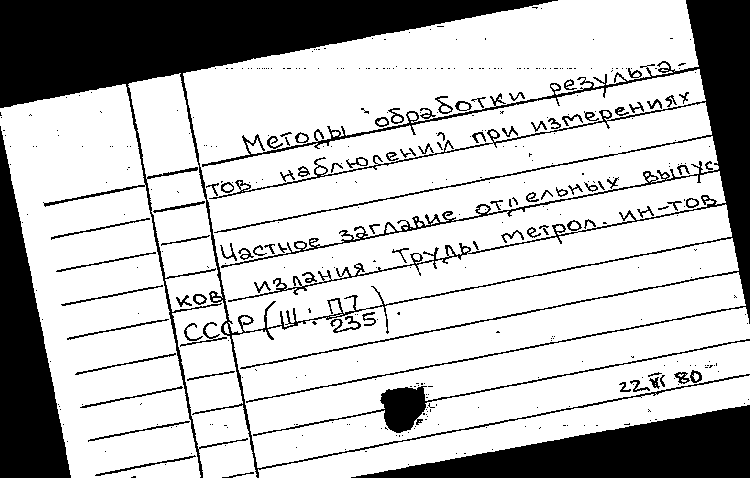 Методы обработки результа-
тов наблюдений при измерениях
Частное заглавие отдельных выпус-
ков издания: Труды метрол. ин-тов
СССР (Ш.: П7/235).
22 VI 80